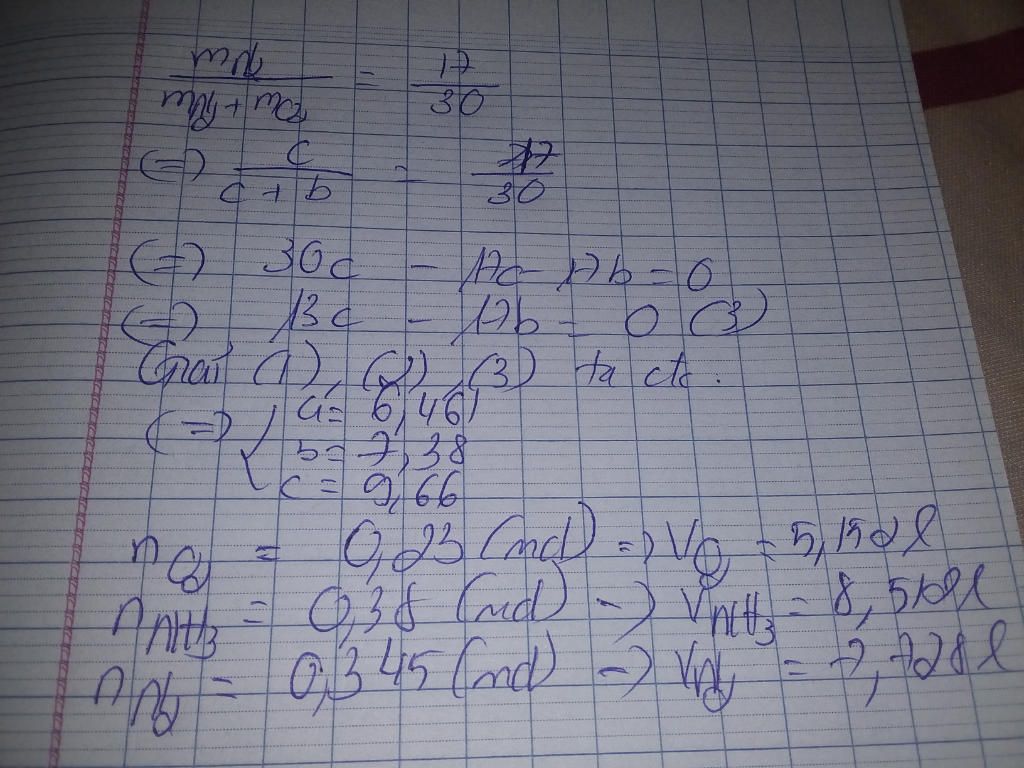 17
30
(=) c / c + b = 17 / 30
(=) 30c - 17c - 17b = 0
(=) 13c - 17b = 0 (3)
(1), (2), (3) ta
(=) a = 6,461
b = 7,38
c = 9,66
n = 0,23 (mol) => V = 5,152 l
nNH3 = 0,38 (mol) -> VNH3 = 8,512 l
nN2 = 0,345 (mol) -> VN2 = 7,728 l